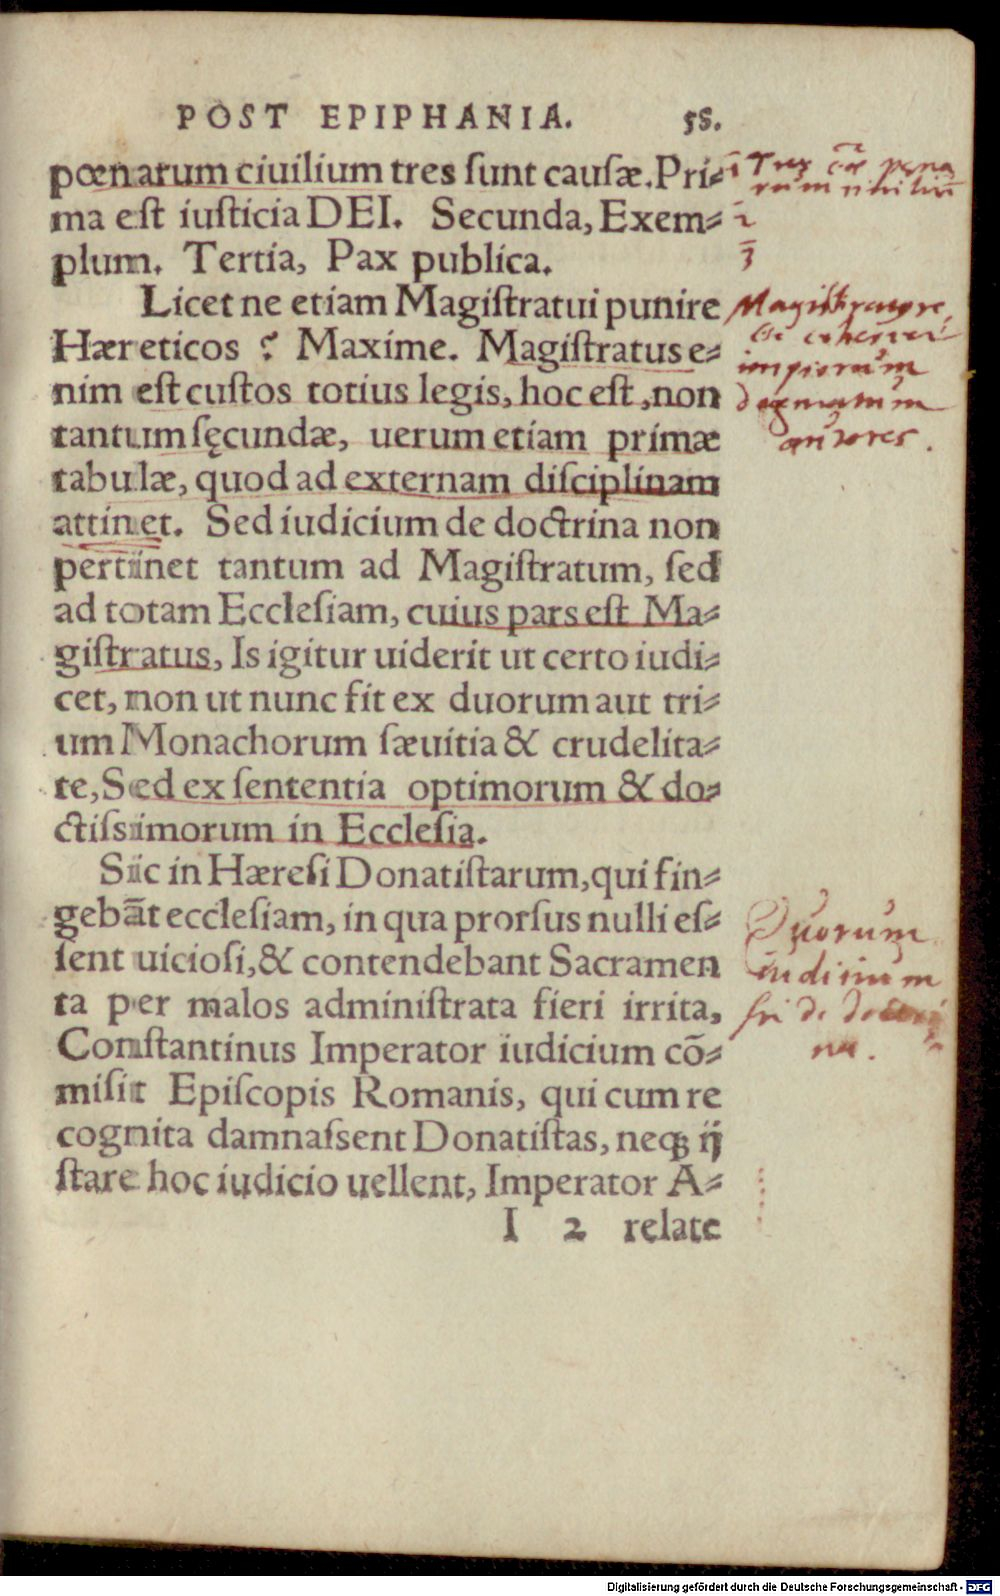 POST EPIPHANIA. 58.
pœnarum ciuilium tres sunt causæ. Pri⸗
ma est iusticia DEI. Secunda, Exem⸗
plum. Tertia, Pax publica.
Licet ne etiam Magistratui punire
Hæreticos ? Maxime. Magistratus e⸗
nim est custos totius legis, hoc est, non
tantum sęcundæ, uerum etiam primæ
tabulæ, quod ad externam disciplinam
attinet. Sed iudicium de doctrina non
pertinet tantum ad Magistratum, sed
ad totam Ecclesiam, cuius pars est Ma⸗
gistratus, Is igitur uiderit ut certo iudi⸗
cet, non ut nunc fit ex duorum aut tri⸗
um Monachorum sæuitia & crudelita⸗
te, Sed ex sententia optimorum & do⸗
ctissimorum in Ecclesia.
Sic in Hæresi Donatistarum, qui fin⸗
gebāt ecclesiam, in qua prorsus nulli es⸗
sent uiciosi, & contendebant Sacramen
ta per malos administrata fieri irrita,
Constantinus Imperator iudicium cō⸗
misit Episcopis Romanis, qui cum re
cognita damnassent Donatistas, neqꝫ ij
stare hoc iudicio uellent, Imperator A⸗
I 2 relate
impiorum
dogmatum
autores.
Quorum
iudicium
Digitalisierung gefördert durch die Deutsche Forschungsgemeinschaft - DFG